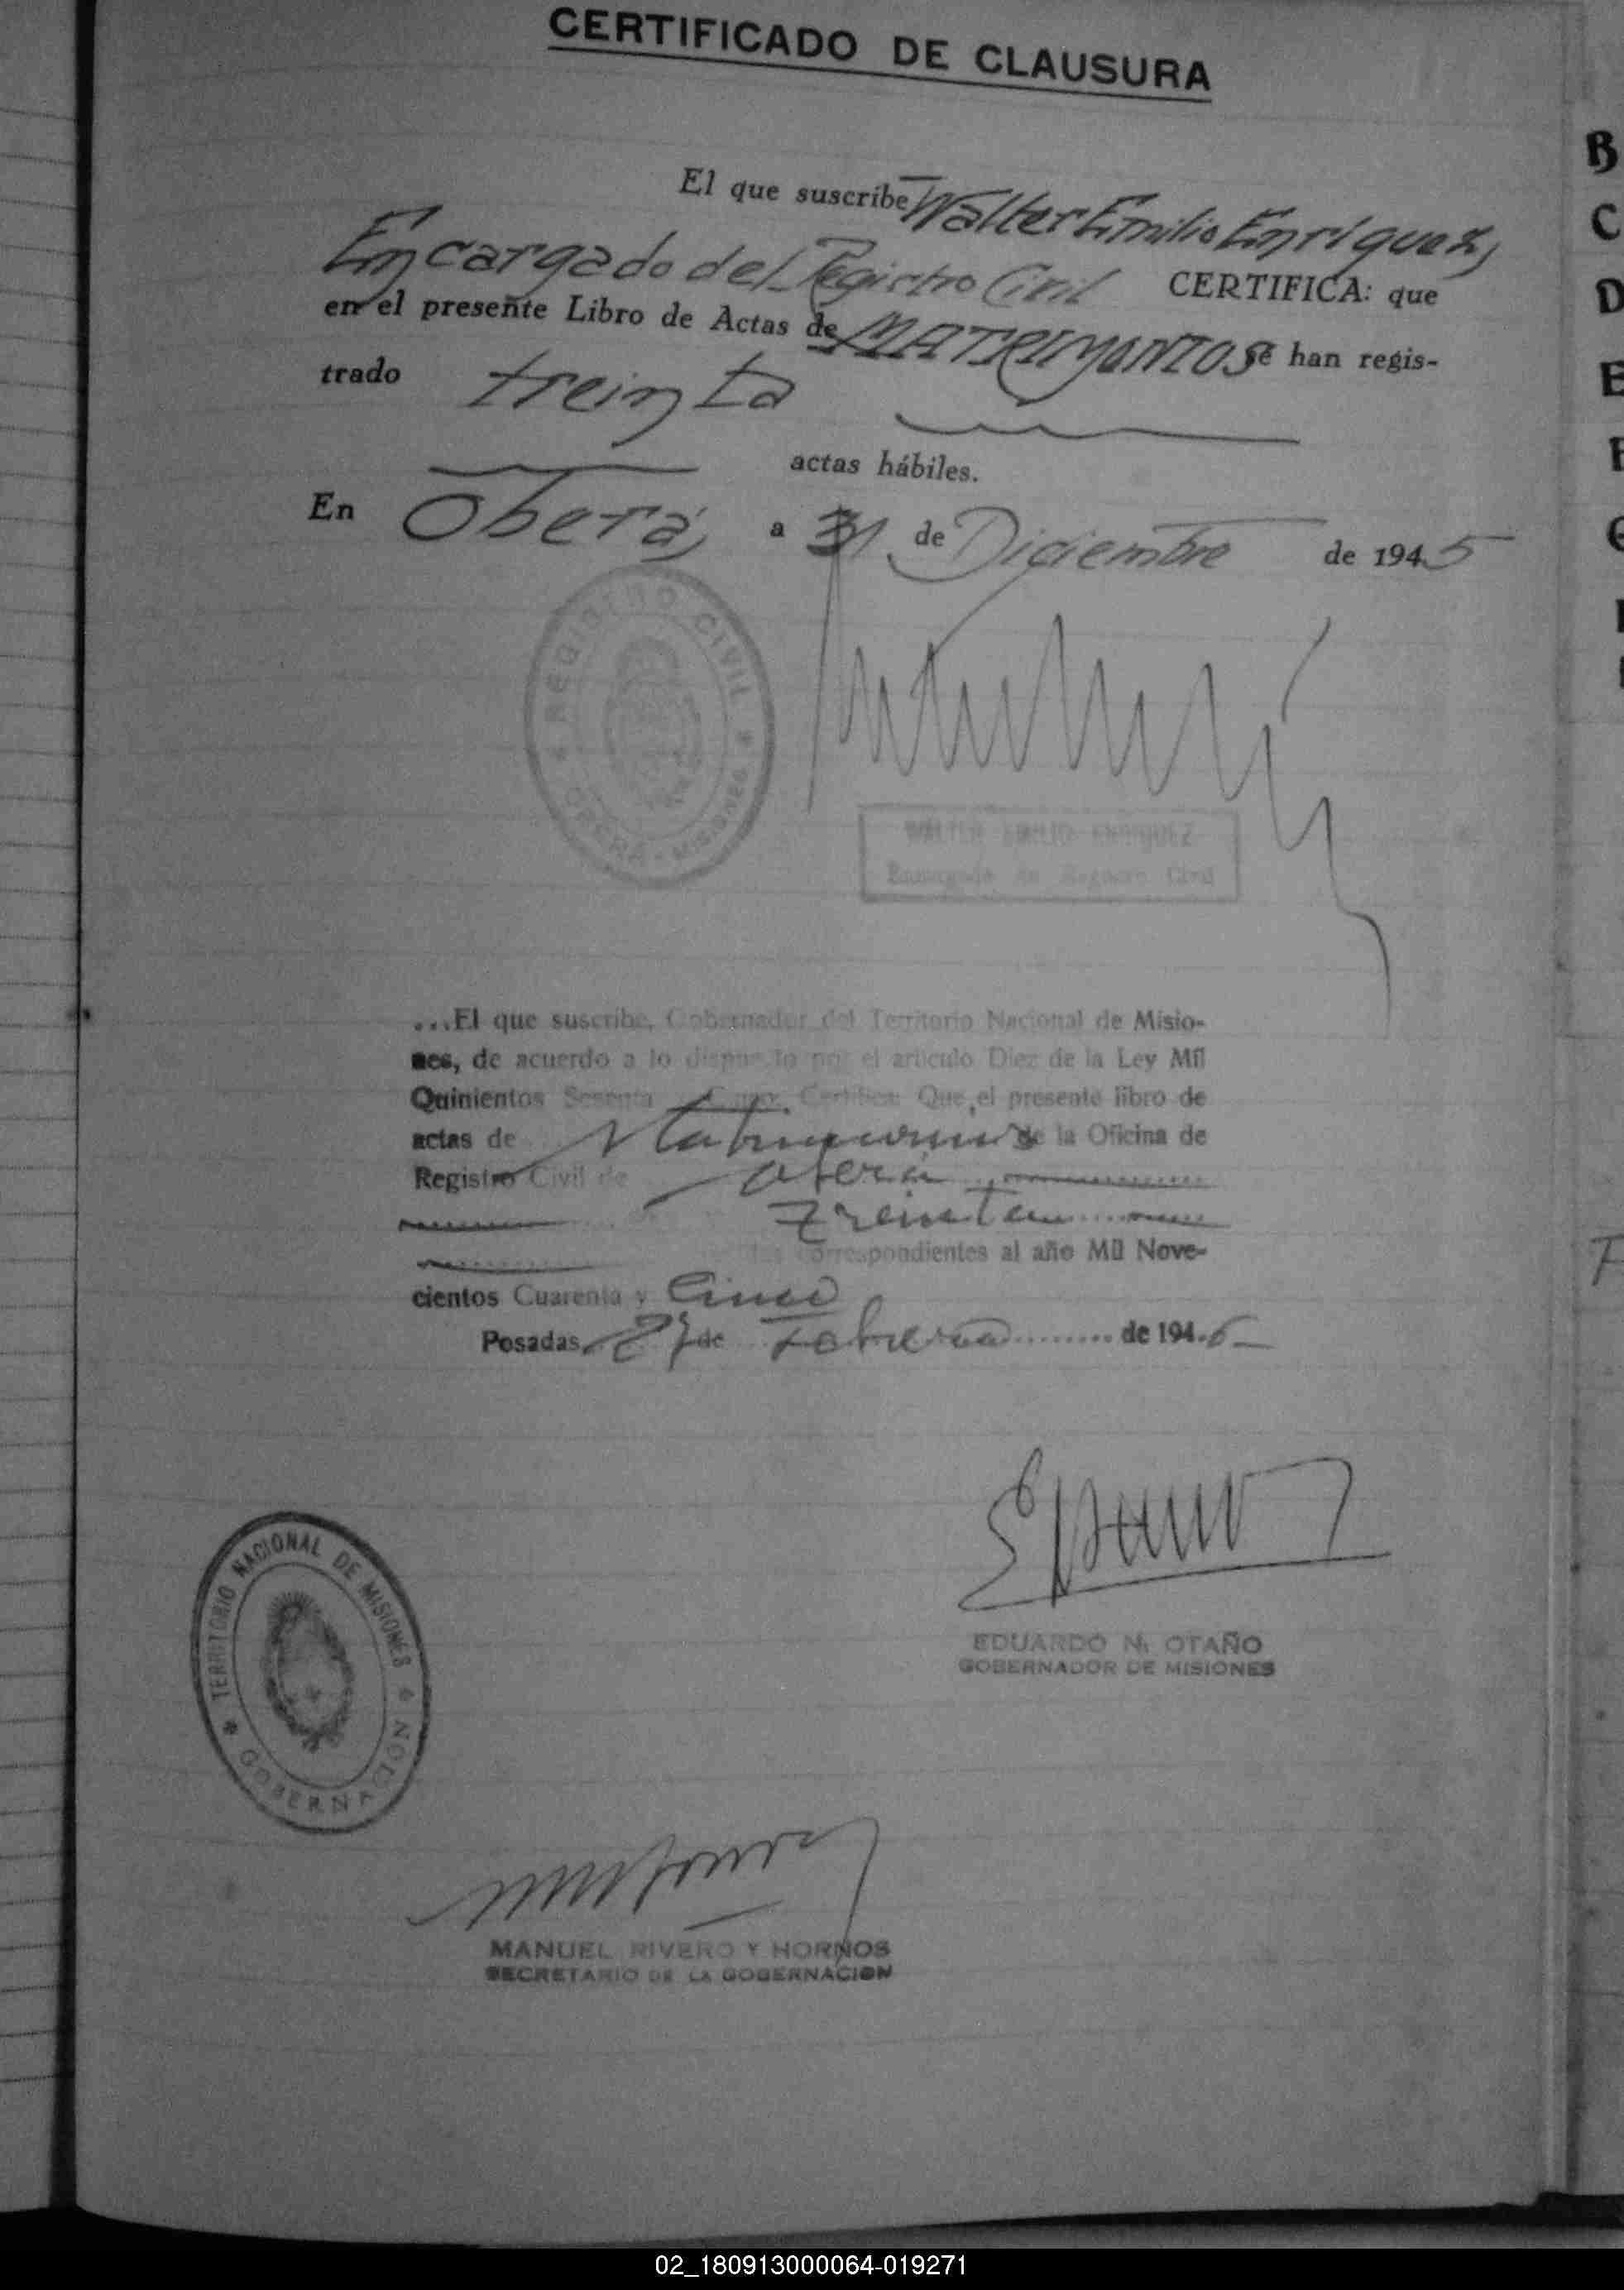 CERTIFICADO DE CLAUSURA
El que suscribe Walter Emilio Enriquez,
Encargado del Registro Civil CERTIFICA: que
en el presente Libro de Actas de MATRIMONIOS se han regis-
trado treinta
actas hábiles.
En Oberá, a 31 de Diciembre de 1945
REGISTRO CIVIL
OBERÁ - MISIONES
WALTER EMILIO ENRIQUEZ
Encargado de Registro Civil
...El que suscribe, Gobernador del Territorio Nacional de Misio-
nes, de acuerdo a lo dispuesto por el artículo Diez de la Ley Mil
Quinientos Sesenta Certifica: Que el presente libro de
actas de Matrimonios de la Oficina de
Registro Civil de Oberá
Treinta
correspondientes al año Mil Nove-
cientos Cuarenta y Cinco
Posadas, 27 de Febrero de 1946
TERRITORIO NACIONAL DE MISIONES
GOBERNACION
EDUARDO N. OTAÑO
GOBERNADOR DE MISIONES
MANUEL RIVERO Y HORNOS
SECRETARIO DE LA GOBERNACION
B
C
D
E
F
02_180913000064-019271